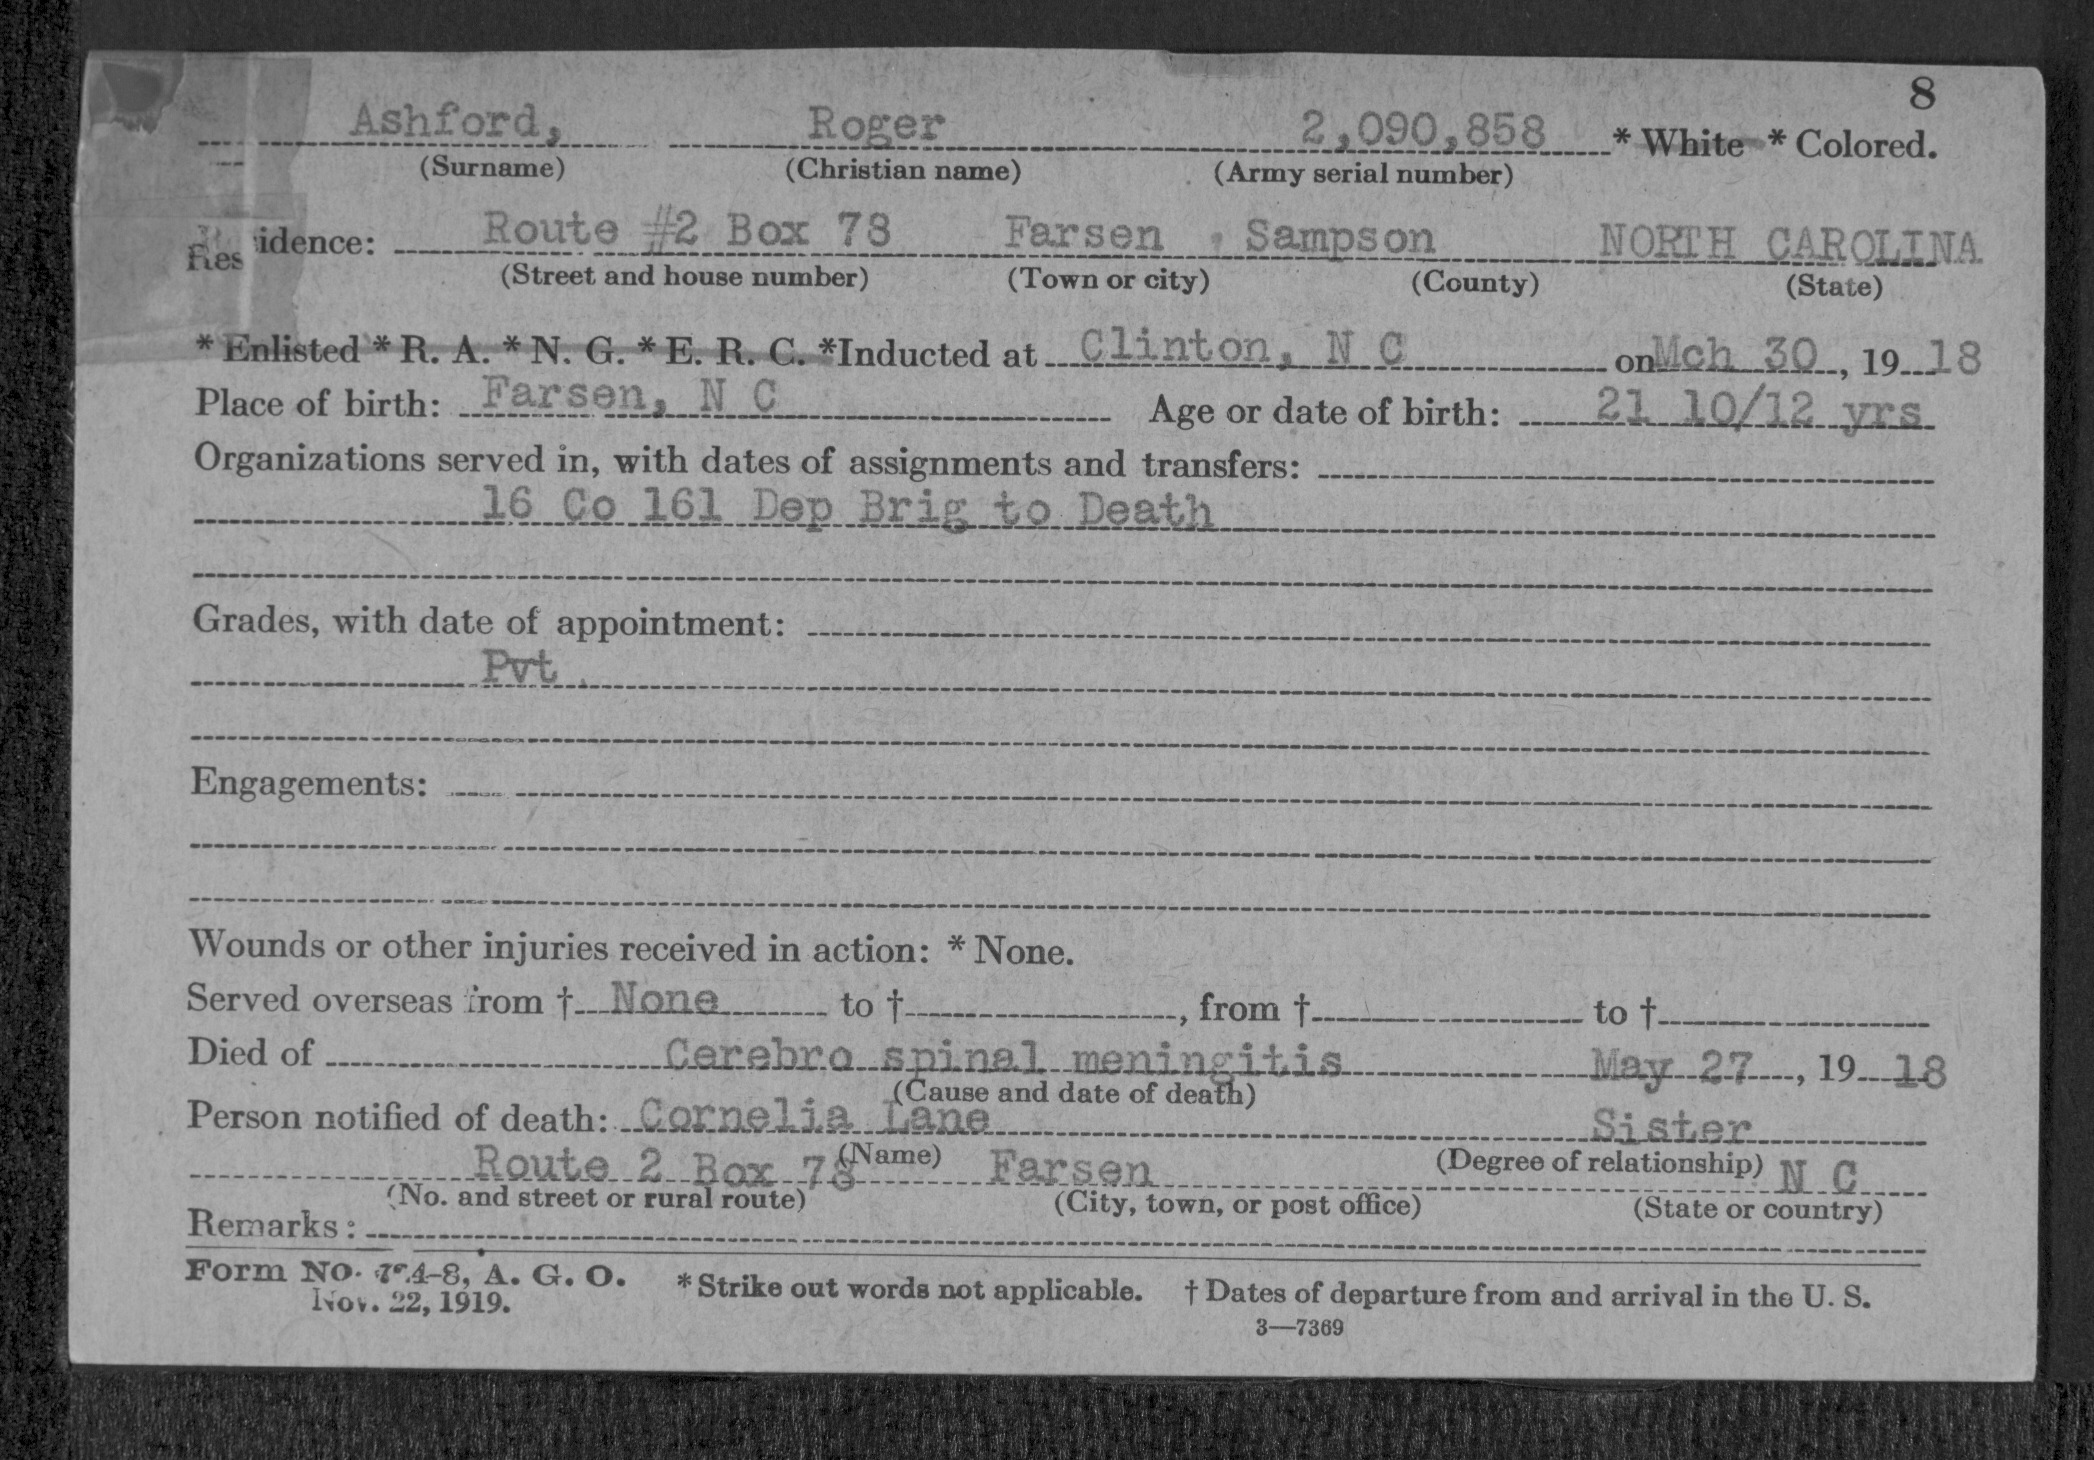 8
Ashford, Roger 2,090,858 * White * Colored.
(Surname) (Christian name) (Army serial number)
Residence: Route #2 Box 78 Farsen Sampson NORTH CAROLINA
(Street and house number) (Town or city) (County) (State)
* Enlisted * R. A. * N. G. * E. R. C. *Inducted at Clinton, N C on Mch 30, 1918
Place of birth: Farsen, N C Age or date of birth: 21 10/12 yrs
Organizations served in, with dates of assignments and transfers:
16 Co 161 Dep Brig to Death
Grades, with date of appointment:
Pvt
Engagements:
Wounds or other injuries received in action: * None.
Served overseas from † None to †, from † to †
Died of Cerebro spinal meningitis May 27, 1918
(Cause and date of death)
Person notified of death: Cornelia Lane Sister
(Name) (Degree of relationship)
Route 2 Box 78 Farsen N C
(No. and street or rural route) (City, town, or post office) (State or country)
Remarks:
Form No. 724-8, A. G. O. * Strike out words not applicable. † Dates of departure from and arrival in the U. S.
Nov. 22, 1919.
3—7369